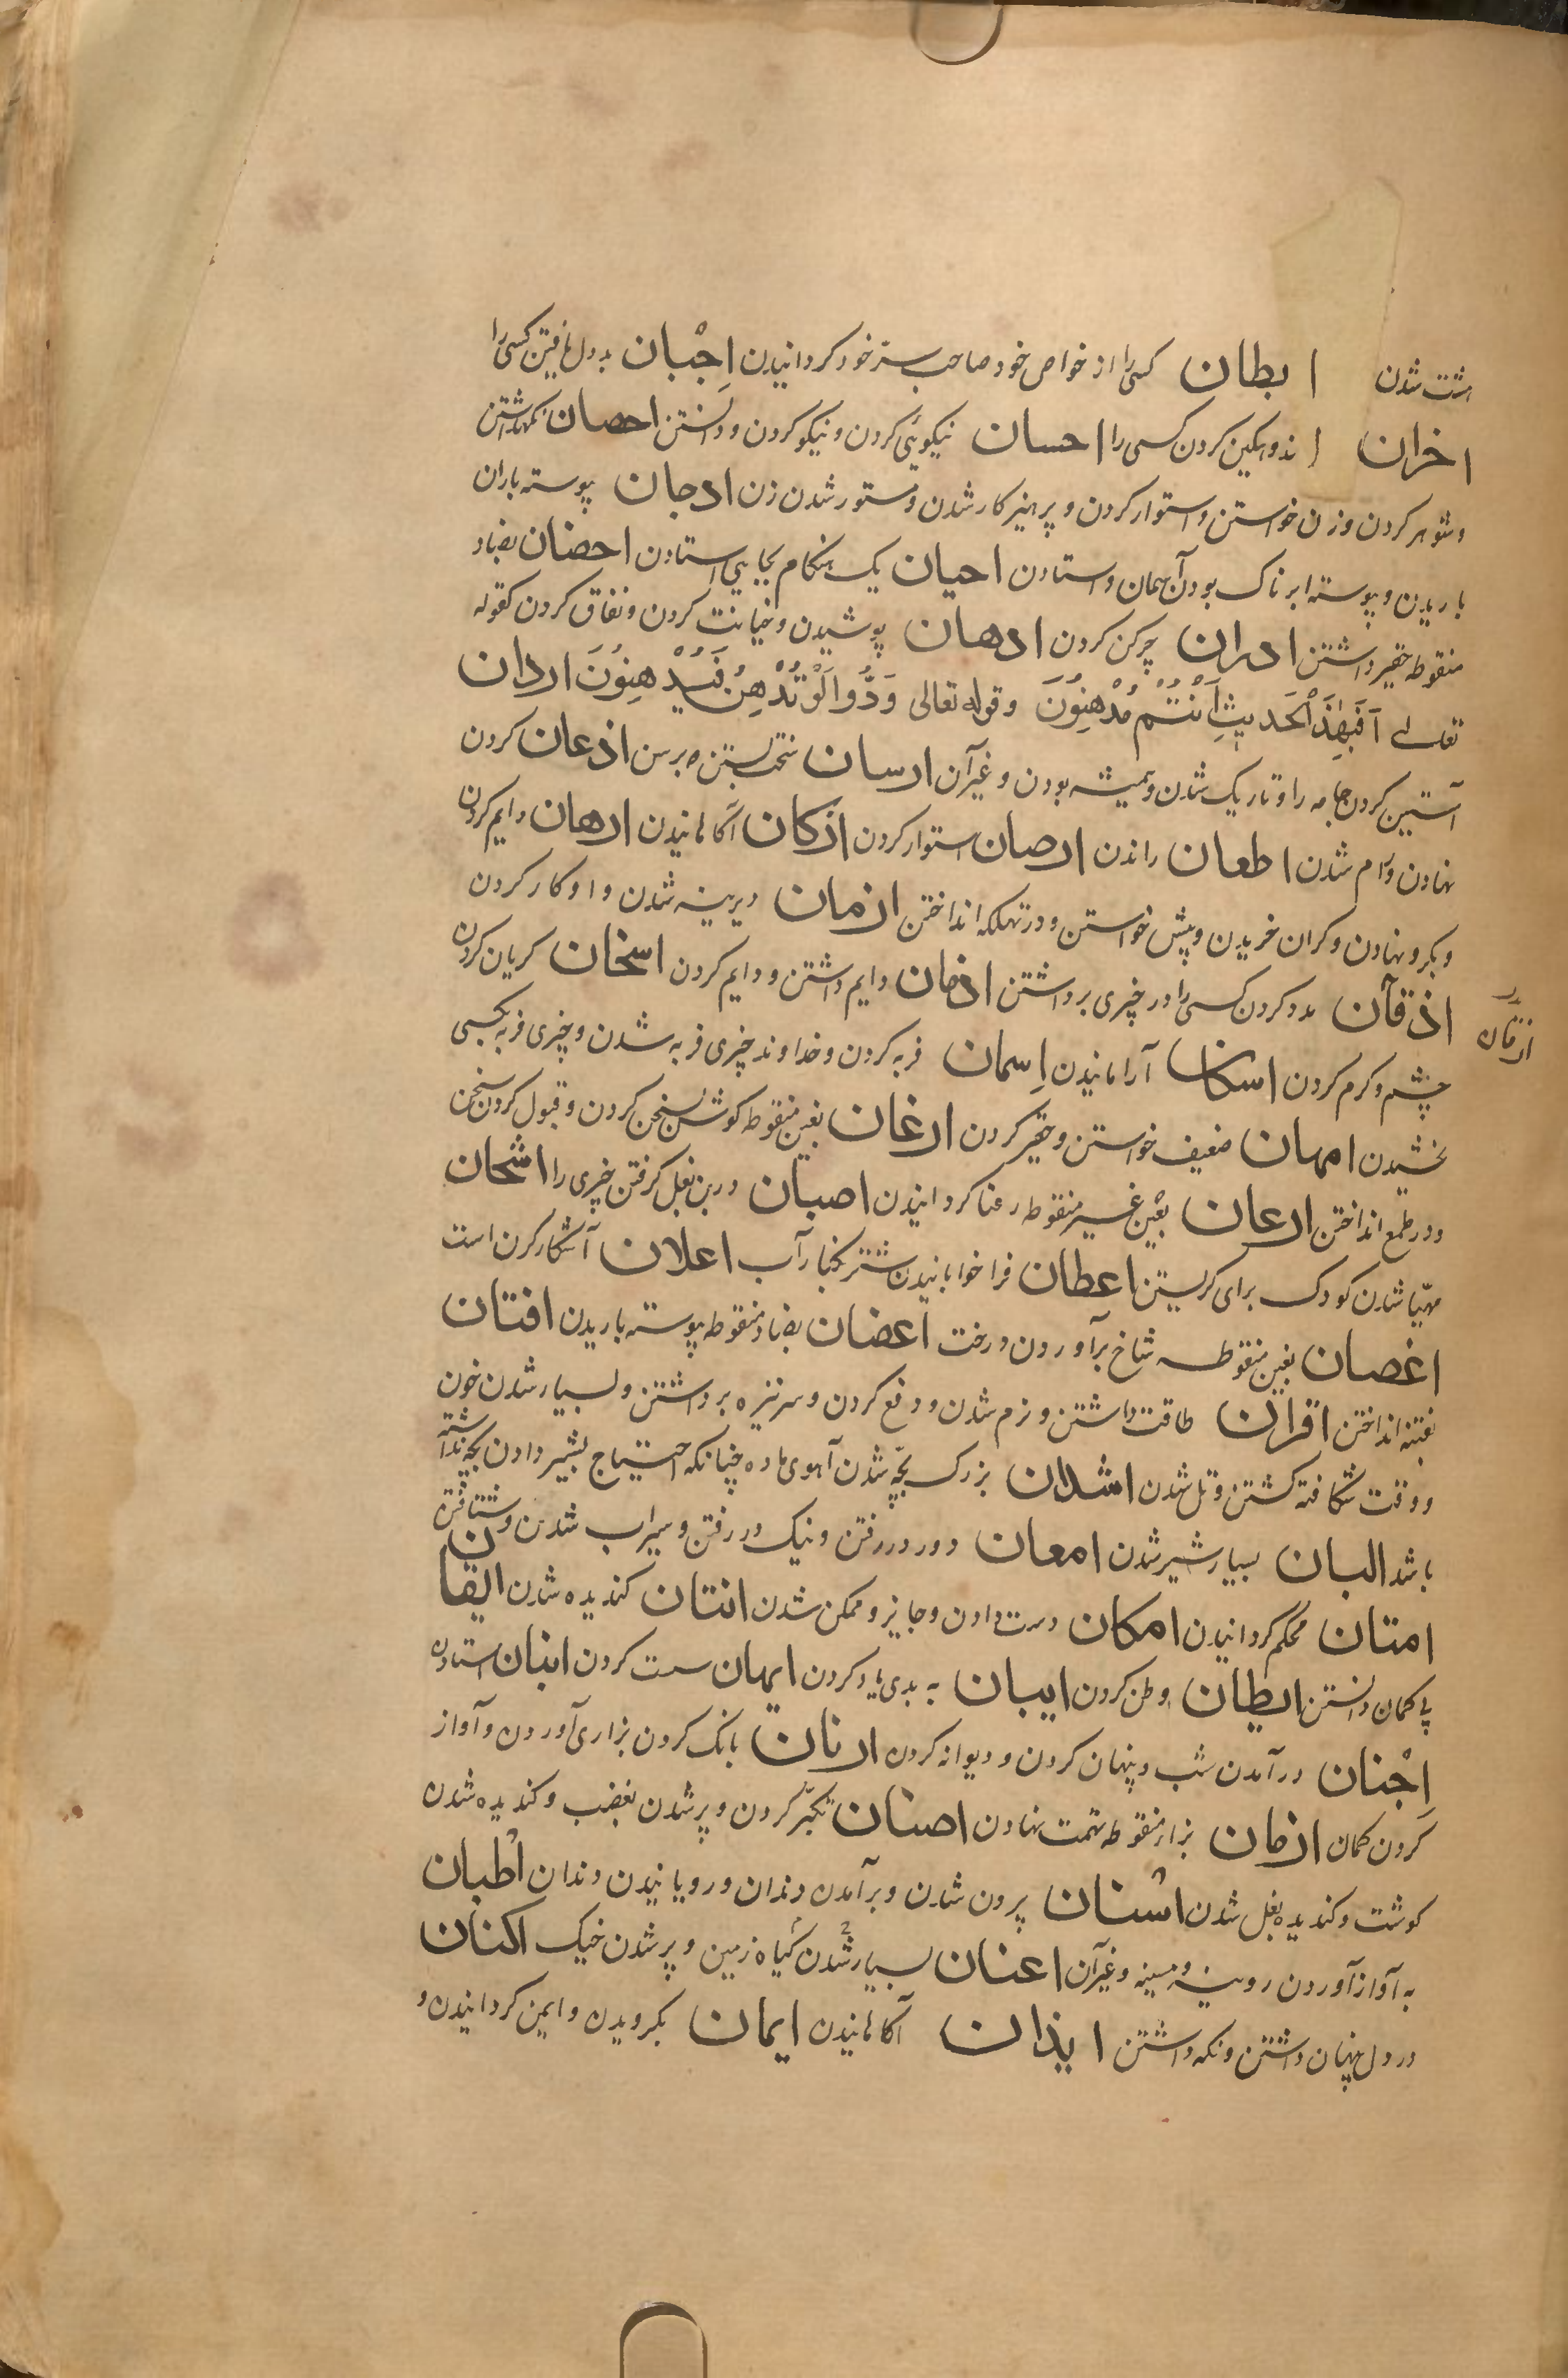 مشت شدن ابطان کسی را از خواص خود صاحب ستر خود کردانیدن اِجْبان بددل یافتن کسی را
اخزان اندوهکین کردن کسی را احسان نیکوئی کردن و نیکو کردن و دانستن احصان نکهداشتن
و شوهر کردن و زن خواستن و استوار کردن و پرهیزکار شدن و مستور شدن زن ادجان پیوسته باران
باریدن و پیوسته ابرناک بودن آسمان و استادن احیان یک هنکام بجایی استادن احضان بضاد
منقوطه حقیر داشتن ادران چرکن کردن ادهان پوشیدن و خیانت کردن و نفاق کردن کقوله
تعالی اَفَبِهٰذَا الْحَدیثِ اَنْتُمْ مُدْهِنُونَ و قوله تعالی وَدُّوا لَوْ تُدْهِنُ فَیُدْهِنُونَ اردان
آستین کردن جامه را و تاریک شدن و همیشه بودن و غیر آن ارسان بستن برسن اذعان کردن
نهادن و رام شدن اطعان راندن ارصان استوار کردن ازکان آکاهانیدن ارهان دایم کردن
و بکرو نهادن و کران خریدن و پیش خواستن و در تهلکه انداختن ازمان دیرینه شدن و او کار کردن
اذقآن مدد کردن کسی را در چیزی برداشتن اذمان دایم داشتن و دایم کردن اسخان کریان کردن
ازمان
چشم و کرم کردن اسکان آرامانیدن اِسمان فربه کردن و خداوند چیزی فربه شدن و چیزی فربه بکسی
بخشیدن امهان ضعیف خواستن و حقیر کردن ارغان بغین منقوطه کوش بسخن کردن و قبول کردن سخن
و در طمع انداختن ارعان بعین غیر منقوطه رعنا کردانیدن اصبان در بن بغل کرفتن چیزی را اشحان
مهیّا شدن کودک برای کریستن اعطان فراخوابانیدن شتر بکنار آب اعلان آشکار کردن است
اغصان بغین منقوطه شاخ برآوردن درخت اغضان بضاد منقوطه پیوسته باریدن افتان
بفتنه انداختن اقران طاقت داشتن و نرم شدن و دفع کردن و سر نیزه برداشتن و بسیار شدن خون
و وقت شکافته کشتن و تل شدن اشدان بزرک بچّه شدن آهوی ماده چنانکه احتیاج بشیر دادن بچه نداشته
باشد البان بسیار شیر شدن امعان دور در رفتن و نیک در رفتن و سیراب شدن و شتافتن
امتان محکم کردانیدن امکان دست دادن و جایز و ممکن شدن انتان کندیده شدن ایقان
بی کمان دانستن ایطان وطن کردن ایبان به بدی یاد کردن ایهان سست کردن ابنان استادن
اِجْنان درآمدن شب و پنهان کردن و دیوانه کردن ارنان بانک کردن بزاری آوردن و آواز
کردن کمان ازمان بزاء منقوطه تهمت نهادن اصنان تکبّر کردن و پر شدن بغضب و کندیده شدن
کوشت و کندیده بغل شدن اسْنان برون شدن و برآمدن دندان و رویانیدن دندان اطْبان
به آواز آوردن روینه و مسینه و غیر آن اعنان بسیار شدن کیاه زمین و پر شدن خیک اکنان
در دل پنهان داشتن و نکه داشتن ایذان آکاهانیدن ایمان بکرویدن و ایمن کردانیدن و